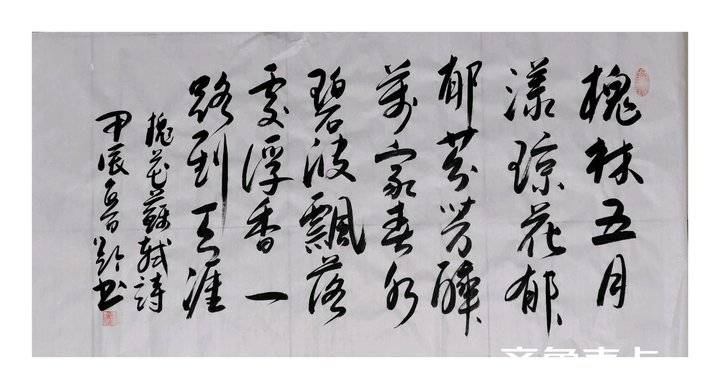 槐林五月
漾琼花郁
郁芬芳醉
万家春水
碧波飘落
处浮香一
路到天涯
槐花苏轼诗
甲辰
书